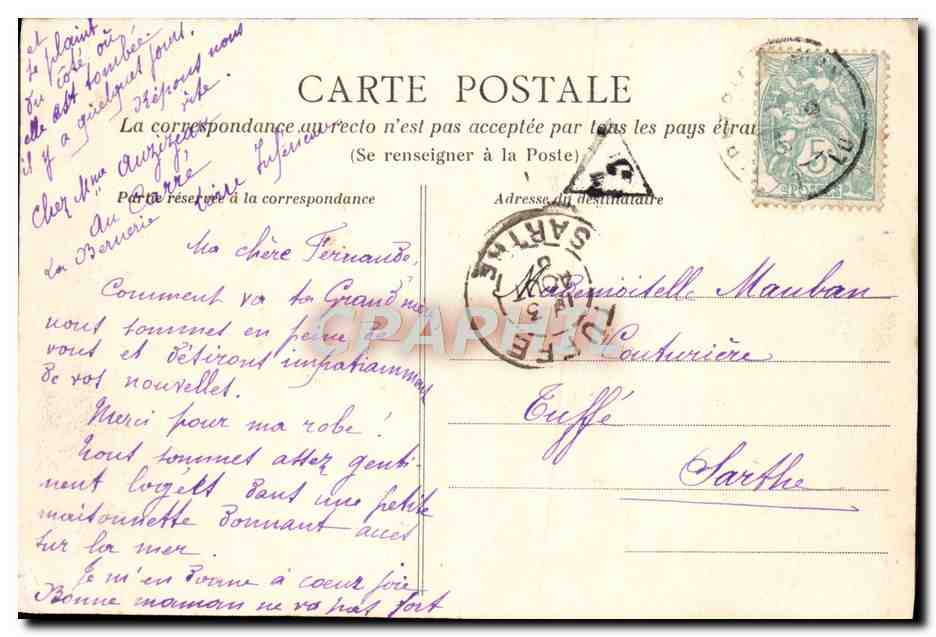 CARTE POSTALE
La correspondance au recto n'est pas acceptée par tous les pays étran
(Se renseigner à la Poste)
Partie réservée à la correspondance
Adresse du destinataire
Ma chère Fernande,
Comment va ta Grand'mère
nous sommes en peine de
vous et désirons impatiamment
de vos nouvelles.
Merci pour ma robe !
Nous sommes assez genti-
ment logées dans une petite
maisonnette donnant accès
sur la mer.
Je m'en donne à cœur joie
Bonne maman ne va pas fort
et
se plaint
du côté où
elle est tombée
il y a quelques jours.
Répons nous
vite.
Chez Mme Auzizeau
au Carré
La Bernerie Loire Inférieure
Mademoiselle Mauban
Couturière
Tuffé
Sarthe
TUFFÉ
SARTHE
5
CPAPHIL